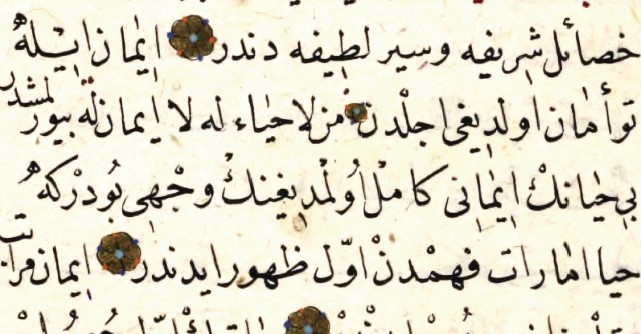 خصائل شريفه و سير لطيفه دندر ايمان ايله
توأمان اولديغى اجلدن من لا حياء له لا ايمان له بيورلمشدر
بى حيانك ايمانى كامل اولمديغنك وجهى بودركه
حيا امارات فهمدن اوّل ظهور ايدندر ايمان فراتب